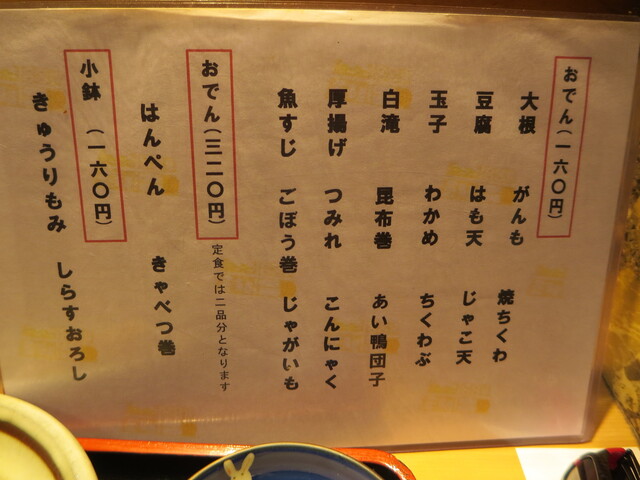 おでん(一六〇円)
大根 がんも 焼ちくわ
豆腐 はも天 じゃこ天
玉子 わかめ ちくわぶ
白滝 昆布巻 あい鴨団子
厚揚げ つみれ こんにゃく
魚すじ ごぼう巻 じゃがいも
おでん(三二〇円) 定食では二品分となります
はんぺん きゃべつ巻
小鉢 (一六〇円)
きゅうりもみ しらすおろし